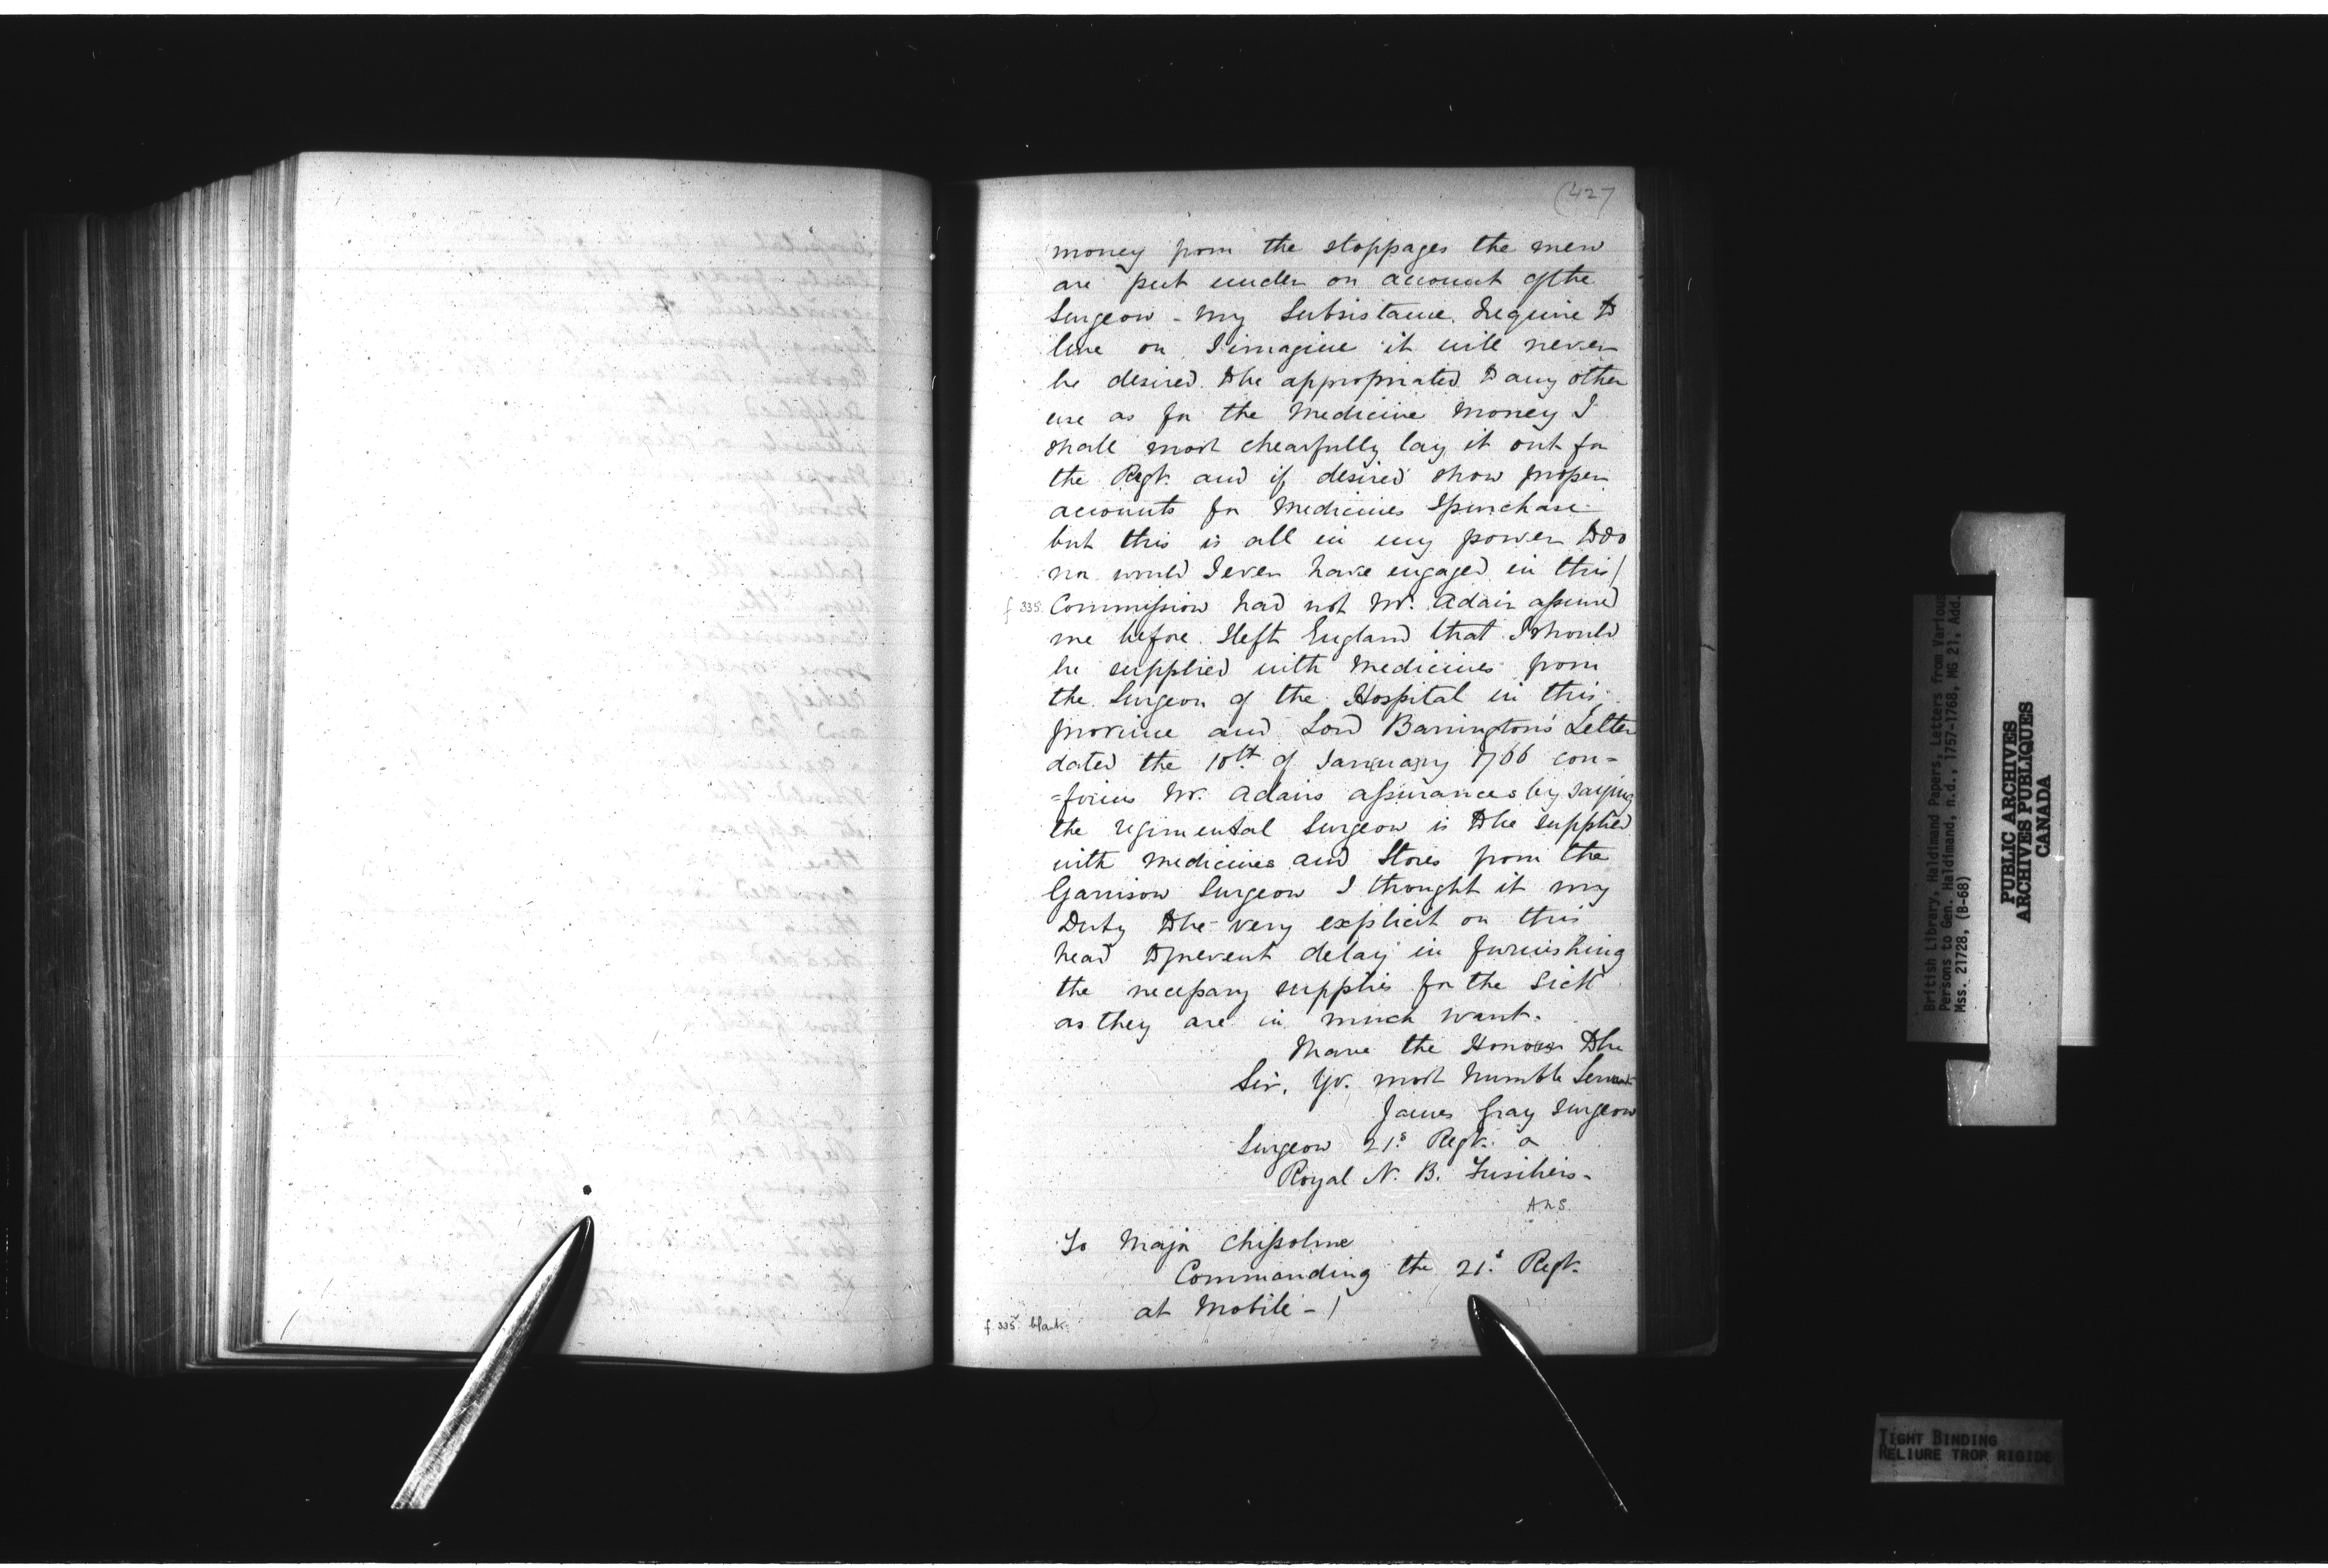 (427
money from the stoppages the men
are put under on account of the
Surgeon - my Subsistance I require to
live on I imagine it will never
be desired to be appropriated to any other
use as for the Medicine Money I
shall most chearfully lay it out for
the Regt. and if desired show proper
accounts for Medicines I purchase -
but this is all in my power to do
nor would I ever have engaged in this /
f 335. Commission had not Mr. Adair assured
me before I left England that I should
be supplied with Medicines from
the Surgeon of the Hospital in this
province and Lord Barrington's Letter
dated the 10th of January 1766 con=
=firms Mr. Adairs assurances by saying
the regimental Surgeon is to be supplied
with medicines and Stores from the
Garrison Surgeon I thought it my
Duty to be very explicit on this
head to prevent delay in furnishing
the necessary supplies for the Sick
as they are in much want.
I have the Honour to be
Sir, Yr. most humble Servant
James Gray Surgeon
Surgeon 21st Regt. or
Royal N. B. Fusiliers -
To Major Chissolme
Commanding the 21st Regt.
at Mobile - /
f. 335 blank.
British Library, Haldimand Papers, Letters from Various
Persons to Gen. Haldimand, n.d., 1757-1768, MG 21, Add.
Mss. 21728, (B-68)
PUBLIC ARCHIVES
ARCHIVES PUBLIQUES
CANADA
TIGHT BINDING
RELIURE TROP RIGIDE